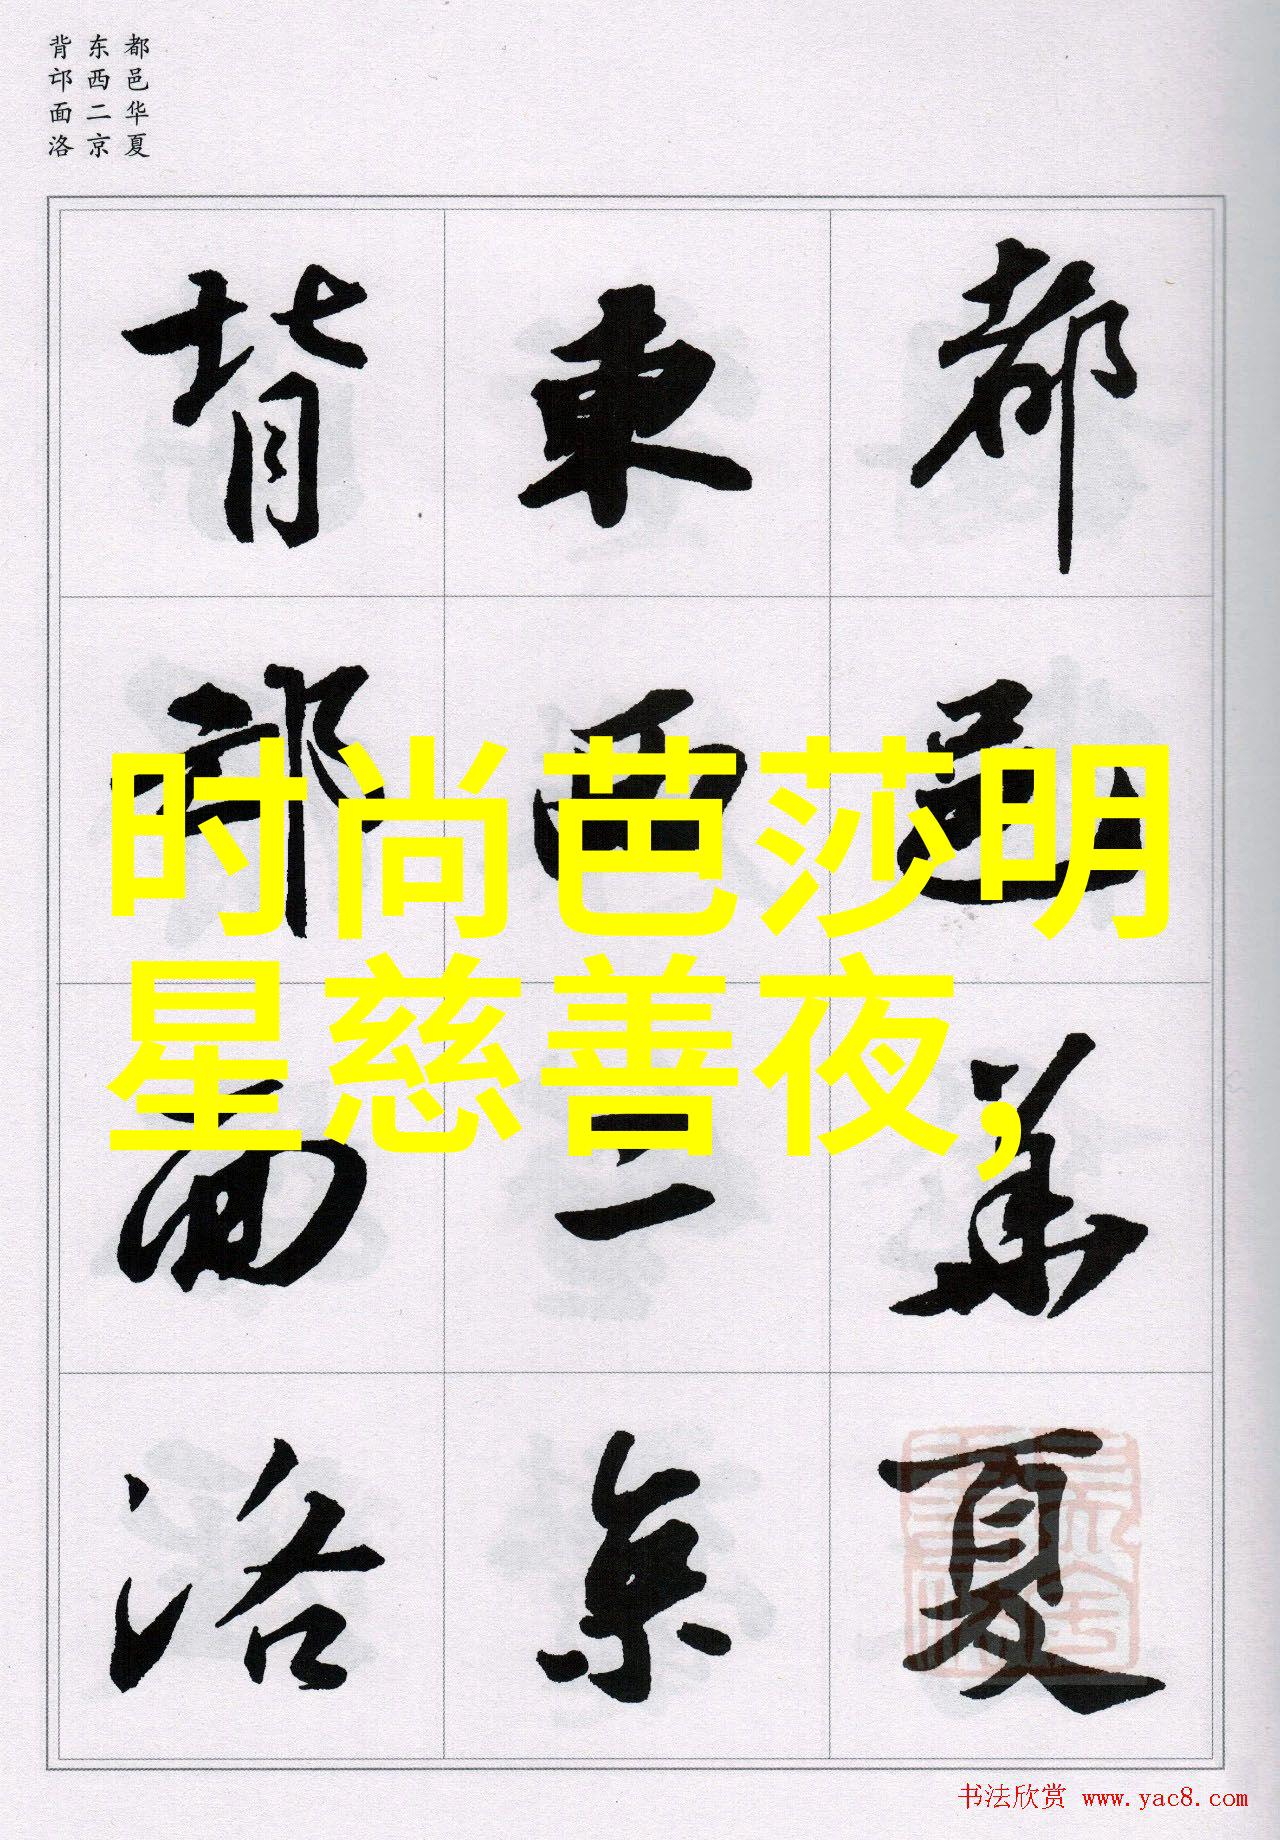 都邑华夏
东西二京
背邙面洛
都邑華夏
東西二京
背邙面洛
时尚芭莎明
星慈善夜,
书法欣赏 www.yac8.com